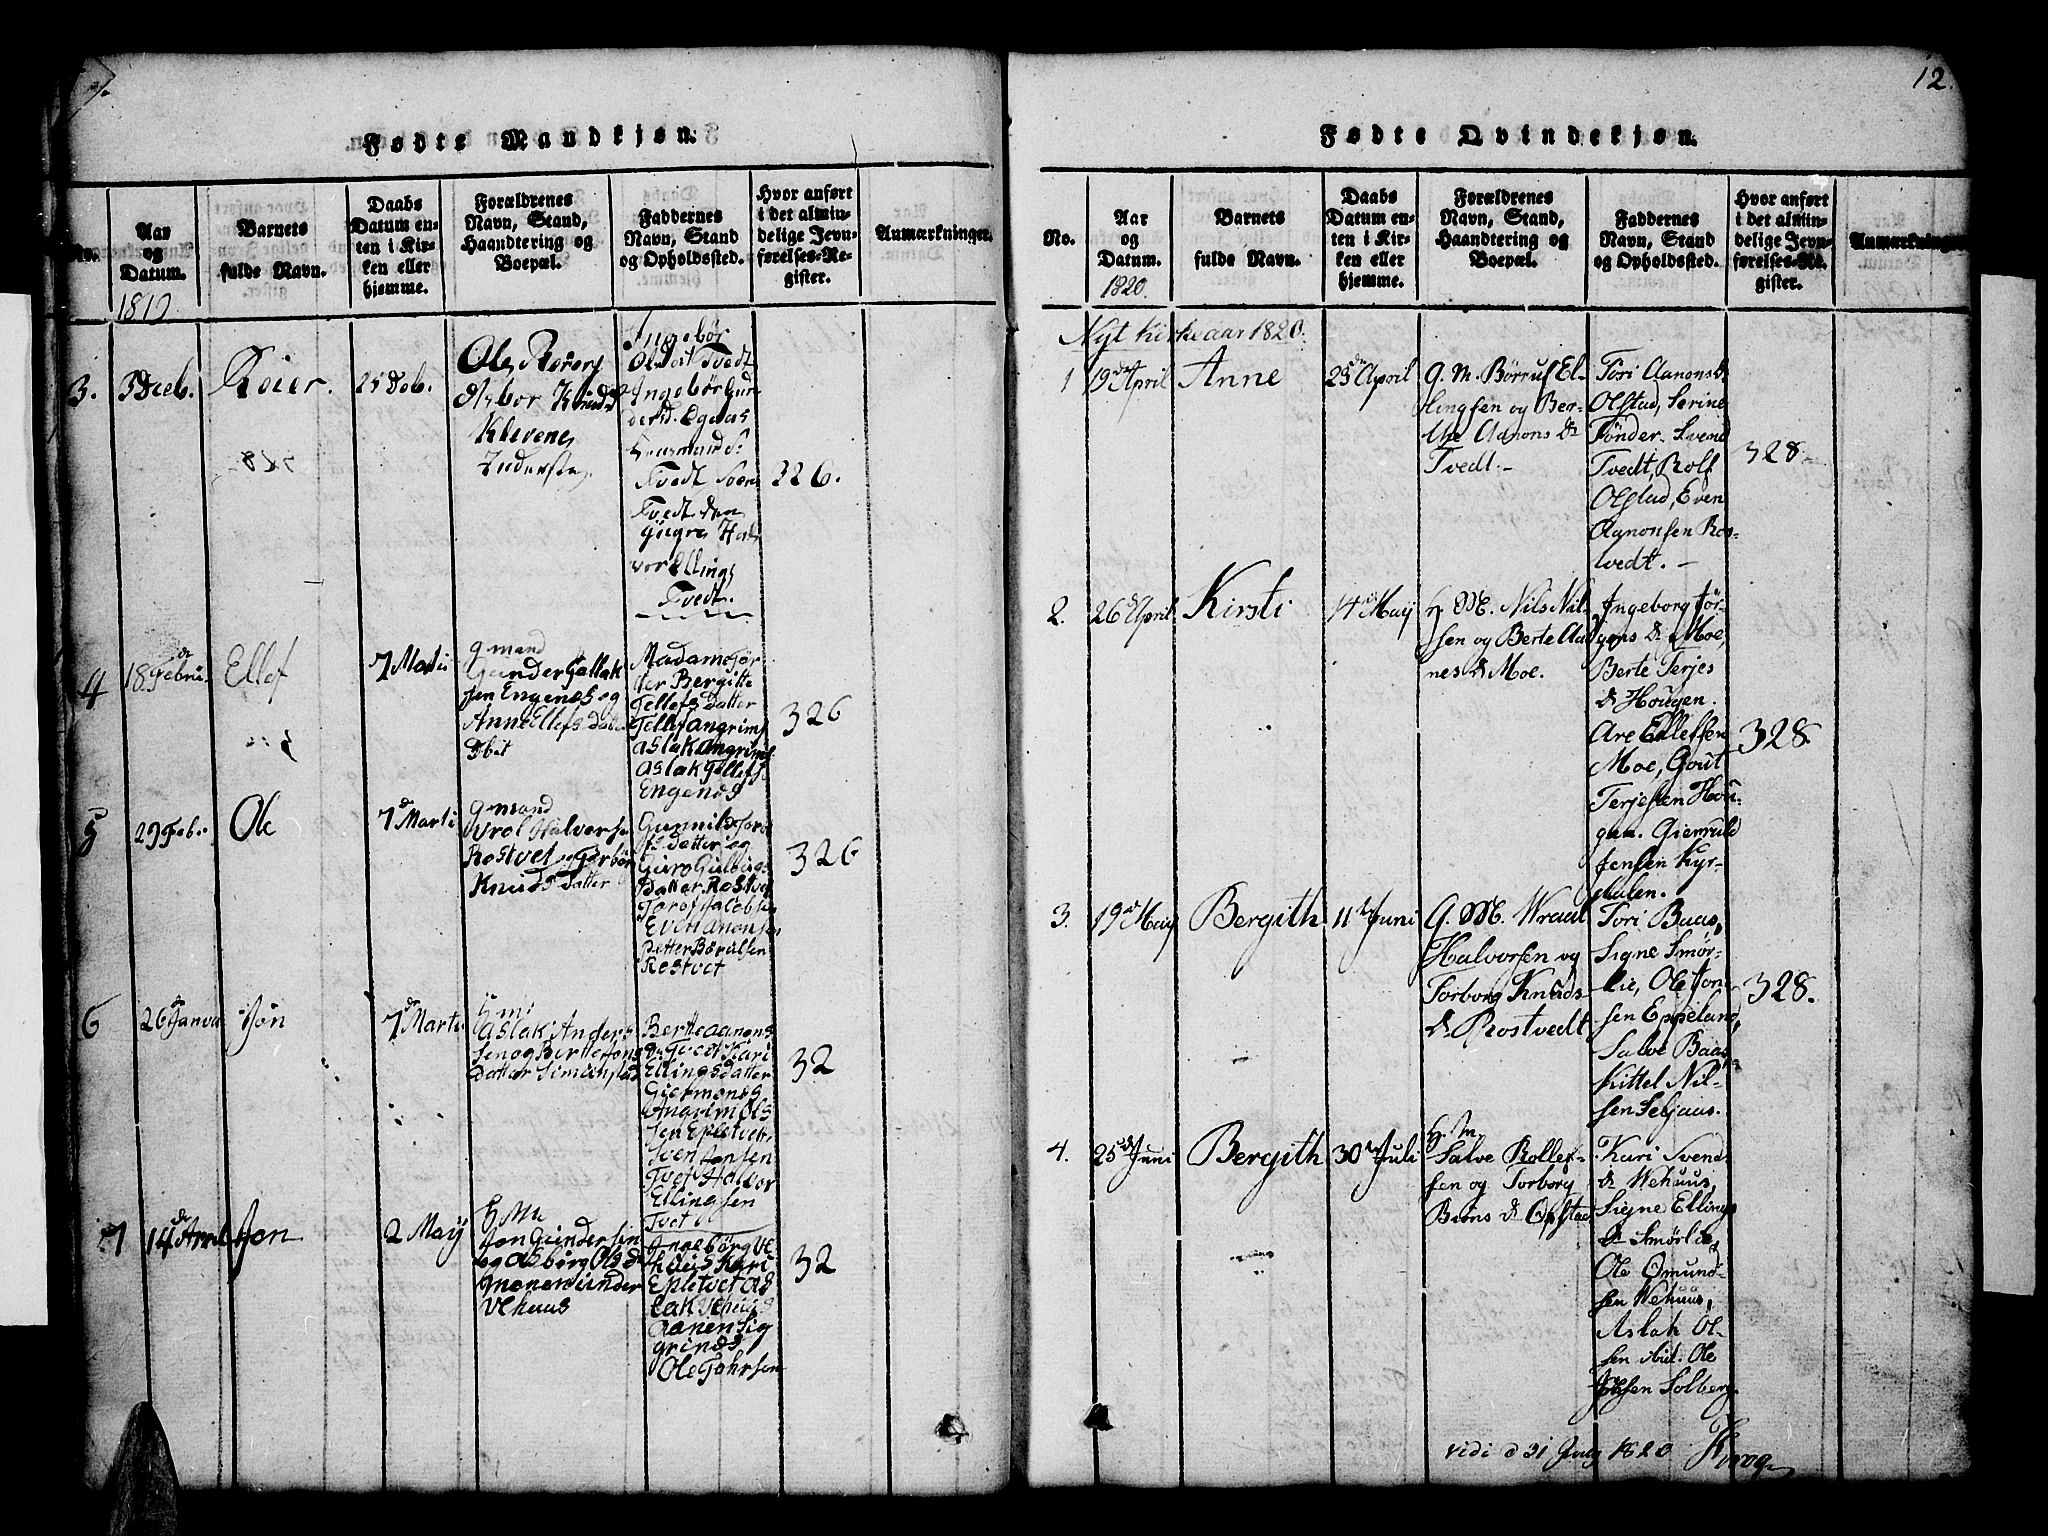 Fødte Mandkjøn.
No.
Aar
og
Datum.
1819
Barnets
fulde Navn.
Daabs
Datum en-
ten i Kir-
ken eller
hjemme.
Forældrenes
Navn, Stand,
Haandtering og
Boepæl.
Faddernes
Navn, Stand
og Opholdssted.
Hvor anført
i det almin-
delige Jevn-
førelses-Re-
gister.
Anmærkninger.
3.
Roier.
Ole
Klevene
Ingebør
Tvedt
Tvedt
Tvedt
vor Ellings
Tvedt.
326.
4
18 Febru.
Ellef
7 Marti
gmand
Gunder Gallak
sen Engenes og
Anne Ellefs Datter
ibit
Madame Tør
der Bergitte
Tellefs Datter
Tellef Angrims
Aslak Angrims
Aslak Tellefs
Engenes
326
5
29 Feb.
Ole
7d Marti
gmand
Wrol Halvorse
Rostvet og Torbør
Knuds Datter
Gunnild Toro
fs Datter og
Guro
Datter Rostvet
Torof Jacobsen
Even Anonsen
Rostvet
326
6
26 Janva
Jøn
7d Marti
Aslak Anders
sen og Berte Jons
Datter Simunstad
Berte Aanons
dr Tvedt Kari
Ellings Datter
Giermones
Angrim Ols
sen Epletvet
Sven Jonsen
Tvet Halvor
Ellingsen
Tvet
32
7
14de Aprl
Jon
2 May
Jon Gundersen
og Asbørg Ols dr
Vehuus
Ingebørg Ve
huus Kari
Epletvet As
lak Vehuus
Aanen Sig
grinds
Ole Tohrsen
32
12.
Fødte Qvindekjøn.
No.
Aar
og
Datum.
1820.
Barnets
fulde Navn.
Daabs
Datum en-
ten i Kir-
ken eller
hjemme.
Forældrenes
Navn, Stand,
Haandtering og
Boepæl.
Faddernes
Navn, Stand
og Opholdssted.
Hvor anført
i det almin-
delige Jevn-
førelses-Re-
gister.
Anmærkninger
Nyt Kirkeaar 1820.
1
19de April
Anne
25de April
G. M. Børruf El-
lingsen og Ber-
the Aanons Dr
Tvedt. -
Tori Aanons Dr
Olstad, Serine
Tønder. Svend
Tvedt, Rolf
Olstad, Even
Aanonsen Ros-
tvedt. -
328.
2.
26d April
Kirsti
14de May
H M. Nils Nil-
sen og Berte Aad
nes Dr Moe.
Ingeborg Jør-
gens Dr Moe,
Berte Terjes
Dr Hougen.
Are Ellefsen
Moe, Gout
Terjesen Hou-
gen. Giermuld
Jensen Kyr-
dalen.
328.
3.
19de May
Bergith
11te Juni
G. M. Wraal
Halvorsen og
Torborg Knuds
Dr. Rostvedt
Tori Baas,
Signe Smør-
lie, Ole Jon-
sen Eppeland,
Salve Baas,
Kittel Nil-
sen Seljaas.
328.
4.
25de Juni
Bergith
30te Juli
H. M.
Salve Rollef-
sen og Torborg
Bions Dr Olstad
Kari Svends
Dr Wehuus,
Signe Ellings
Dr Smørlie,
Ole Omund-
sen Wehuus,
Aslak Ol-
sen ibid. Ole
Olsen Solberg.
vidi d 31 July 1820 Krog